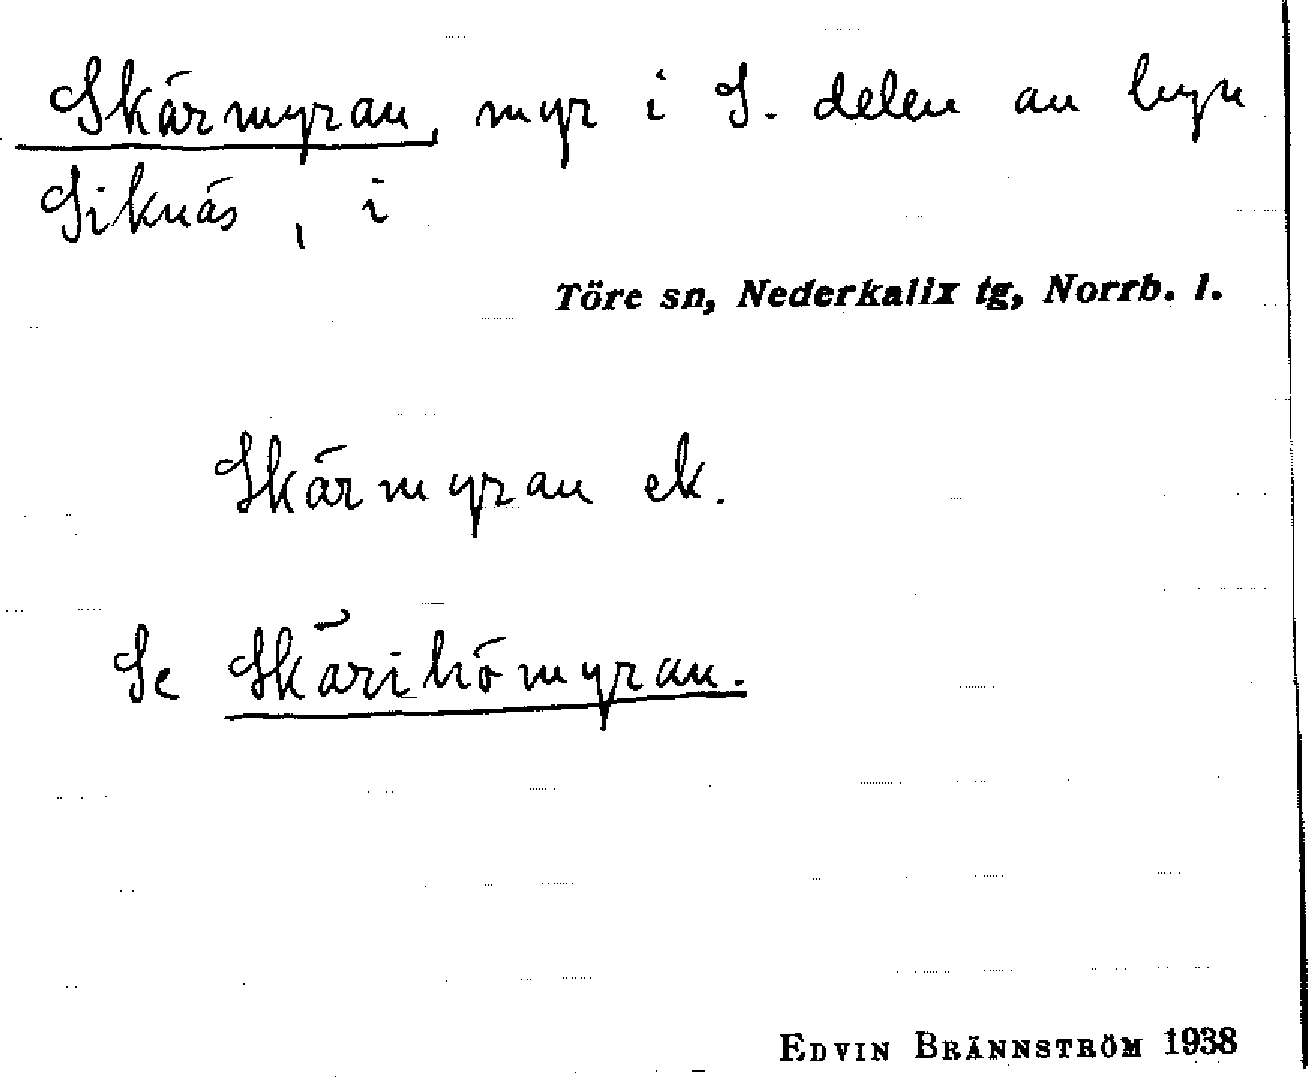 Skärmyran, myr i S. delen av byn
Siknäs, i
Töre sn, Nederkalix tg, Norrb. l.
Skärmyran ek.
Se Skärihömyran.
EDVIN BRÄNNSTRÖM 1938